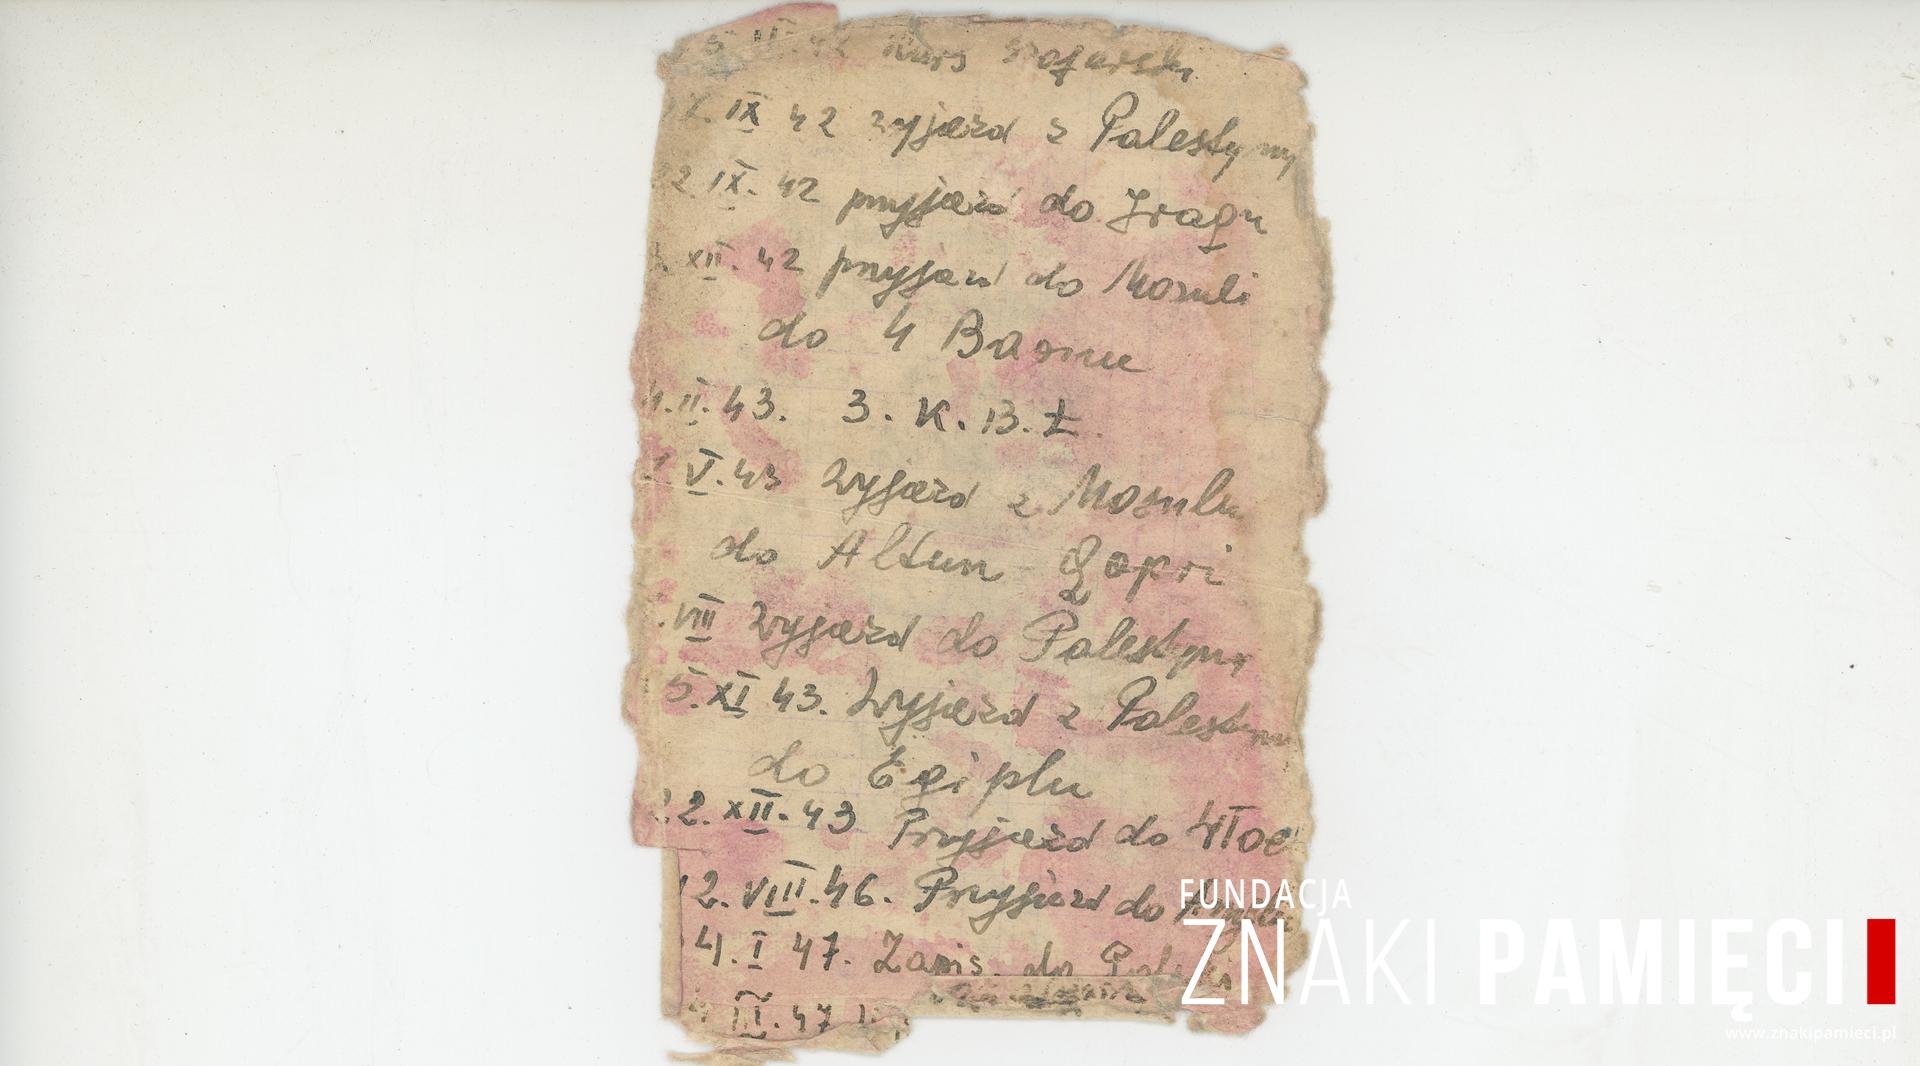 5 42 Kurs
IX 42 wyjazd z Palestyny
22 IX. 42 przyjazd do Iraqu
XII. 42 przyjazd do Mosuli
do 4 Baonu
4. II. 43. 3. K. B. Ł.
1 V. 43 Wyjazd z Mosulu
do Altun Qopri
. VIII Wyjazd do Palestyny
5. XI 43. Wyjazd z Palestyny
do Egiptu
22. XII. 43 Przyjazd do Włoch
12. VIII. 46. Przyjazd do
4. I 47. Zapis. do Polski
III. 47
FUNDACJA
ZNAKI PAMIĘCI
www.znakipamieci.pl